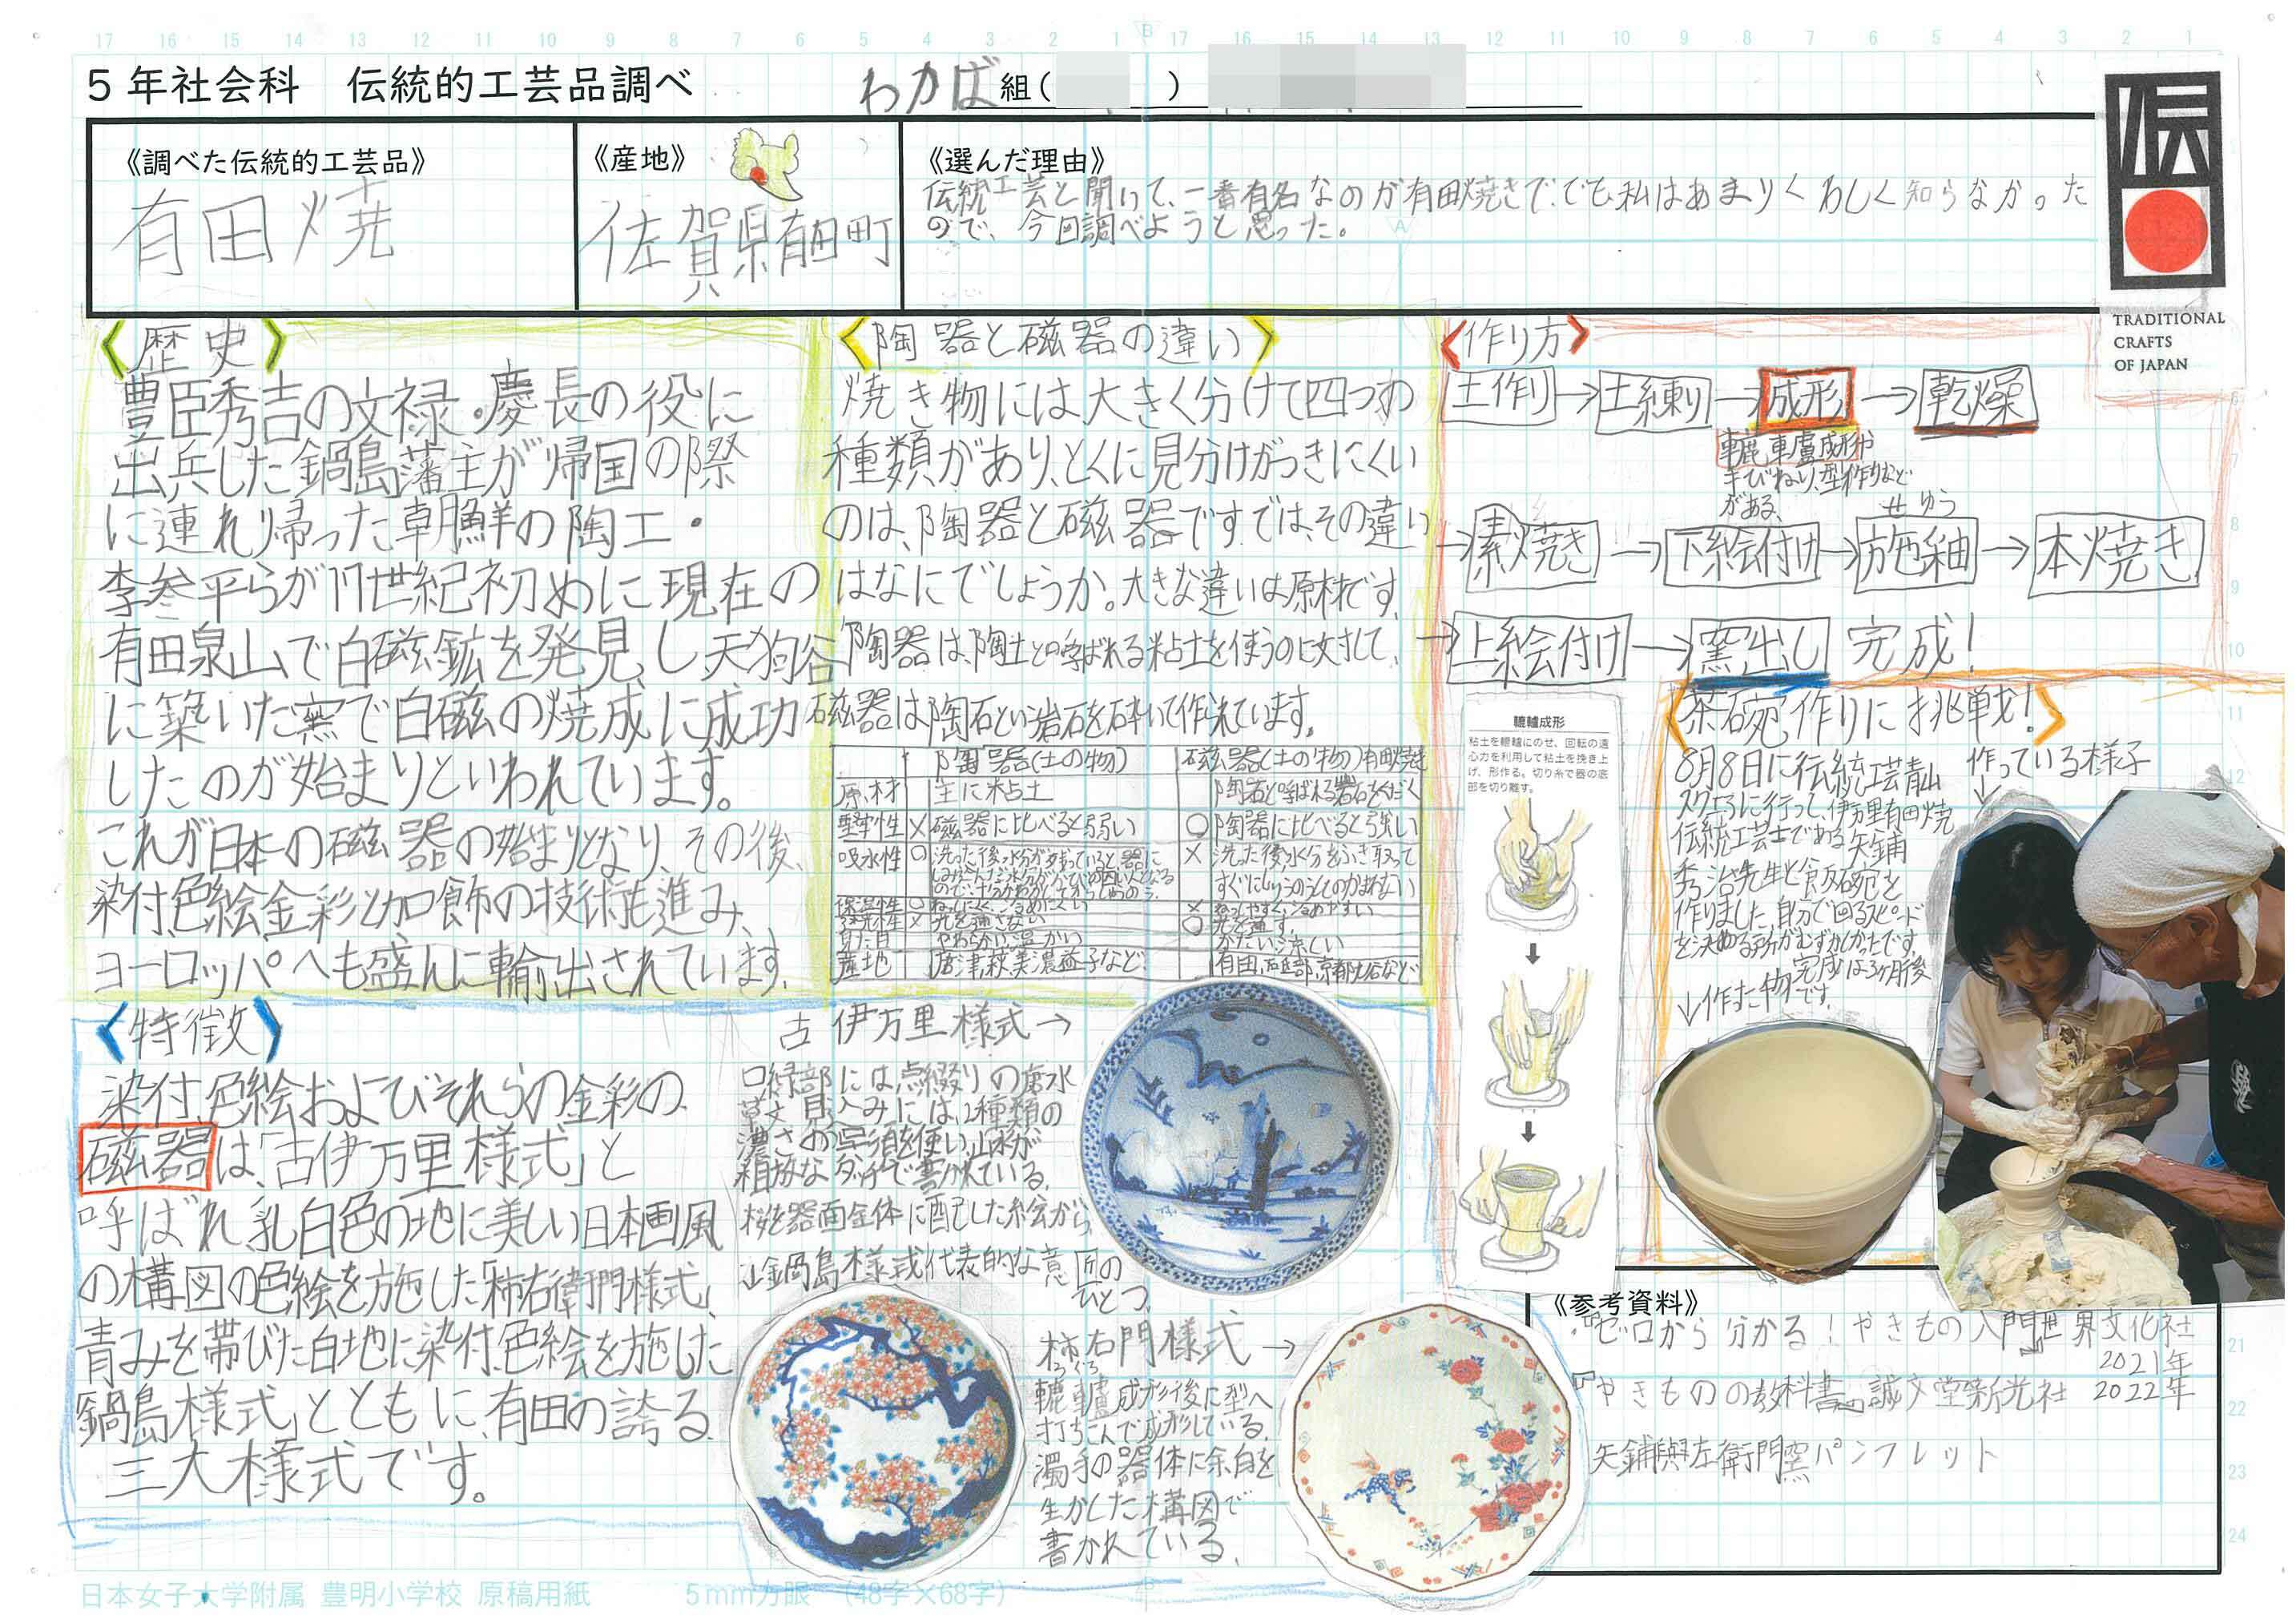 5年社会科　伝統的工芸品調べ
わかば組(　　)
《調べた伝統的工芸品》
有田焼
《産地》
佐賀県有田町
《選んだ理由》
伝統工芸と聞いて、一番有名なのが有田焼きで、でも、私はあまりくわしく知らなかった
ので、今回調べようと思った。
伝
TRADITIONAL
CRAFTS
OF JAPAN
〈歴史〉
豊臣秀吉の文禄・慶長の役に
出兵した鍋島藩主が帰国の際
に連れ帰った朝鮮の陶工・
李参平らが17世紀初めに現在の
有田泉山で白磁鉱を発見し、天狗谷
に築いた窯で白磁の焼成に成功
したのが始まりといわれています。
これが日本の磁器の始まりとなり、その後、
染付、色絵金彩と加飾の技術も進み、
ヨーロッパへも盛んに輸出されています。
〈陶器と磁器の違い〉
焼き物には大きく分けて四つの
種類があり、とくに見分けがつきにくい
のは、陶器と磁器です。では、その違い
はなにでしょうか。大きな違いは原材です。
陶器は、陶土と呼ばれる粘土を使うのに対して、
磁器は陶石という岩石を砕いて作られています。
陶器(土の物)　磁器(土の物)有田焼
原材　主に粘土　陶石と呼ばれる岩石をくだく
堅牢性　×　磁器に比べると弱い　○　陶器に比べると強い
吸水性　○　洗った後、水分が残っていると器に　×　洗った後、水分をふき取って
すぐにしまってもかまわない
保温性　○　熱しにくく、冷めにくい　×　熱しやすく、冷めやすい
透光性　×　光を通さない　○　光を通す。
やわらかい、温かい　かたい、涼しい
産地　唐津、萩、美濃、益子など　有田、砥部、京都、九谷など
〈作り方〉
土作り→土練り→成形→乾燥
轆轤成形や
手びねり、型作りなど
がある、
せゆう
→素焼き→下絵付け→施釉→本焼き
→上絵付け→窯出し 完成！
轆轤成形
粘土を轆轤にのせ、回転の遠
心力を利用して粘土を挽き上
げ、形作る。切り糸で器の底
部を切り離す。
〈茶碗作りに挑戦！〉
8月8日に伝統工芸青山
スクエアに行って、伊万里有田焼
伝統工芸士である矢鋪
秀治先生と飯碗を
作りました。自分で回るスピード
を決める所がむずかしかったです。
完成は3ヶ月後
です。
作っている様子
↓
↓作った物
〈特徴〉
染付、色絵およびそれらの金彩の
磁器は、「古伊万里様式」と
呼ばれ、乳白色の地に美しい日本画風
の構図の色絵を施した「柿右衛門様式」、
青みを帯びた白地に染付、色絵を施した
鍋島様式」とともに、有田の誇る
三大様式です。
古伊万里様式→
口縁部には点綴りの唐水
草文、見込みには、2種類の
濃さの呉須を使い、山水が
粗放なタッチで書かれている。
桜を器面全体に配した絵がら。
↓鍋島様式代表的な意匠の
ひとつ。
柿右門様式→
ろくろ
轆轤成形後に型へ
打ちこんで成形している。
濁手の器体に余白を
生かした構図で
書かれている。
《参考資料》
・ゼロから分かる！やきもの入門 世界文化社
2021年
『やきものの教科書』誠文堂新光社 2022年
矢鋪與左衛門窯パンフレット
日本女子大学附属 豊明小学校 原稿用紙　5mm方眼　(48字×68字)